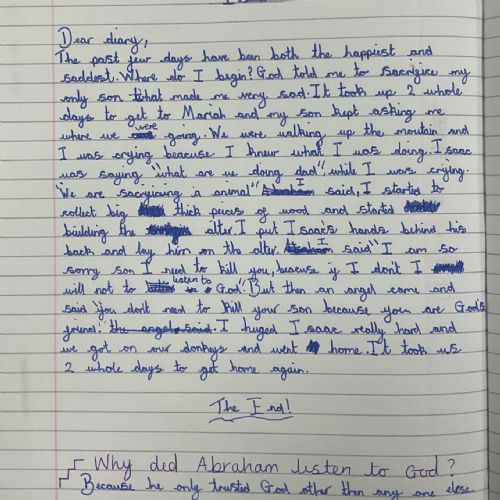 Dear diary,
The past few days have been both the happiest and
saddest. Where do I begin? God told me to sacrifice my
only son that made me very sad. It took up 2 whole
days to get to Mariah and my son kept asking me
where we were going. We were walking up the moutain and
I was crying beacuse I knew what I was doing. Isaac
was saying "what are we doing dad" while I was crying.
"We are sacrificing a animal" I said, I started to
collect big thick peices of wood and started
biulding the alter. I put Isaacs hands behind his
back and lay him on the alter. I said "I am so
sorry son I need to kill you, beacuse if I don't I
will not to listen to God". But then an angel came and
said "you don't need to kill your son because you are Gods
friend. the angel said. I huged Isaac really hard and
we got on our donkys and went home. It took us
2 whole days to get home again.
The End!
Why did Abraham listen to God?
Because he only trusted God other then any one else